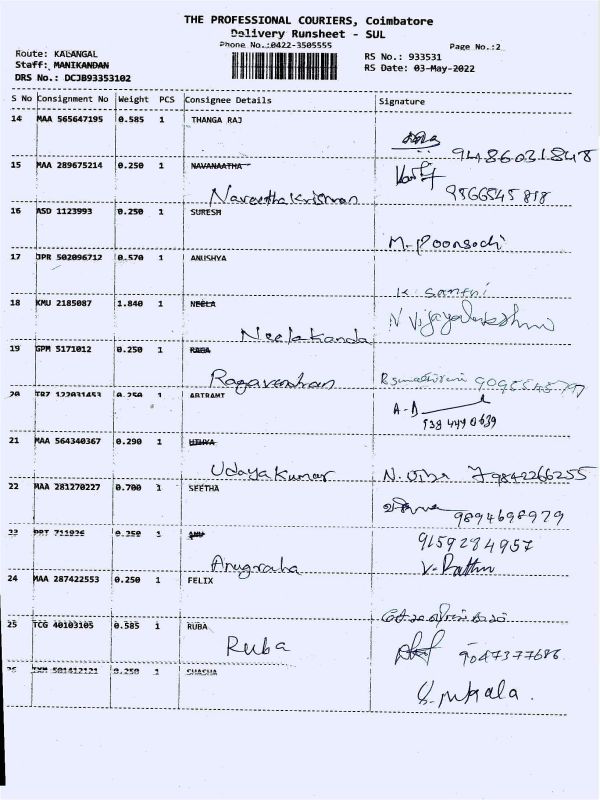 THE PROFESSIONAL COURIERS, Coimbatore
Delivery Runsheet - SUL
Phone No.:0422-3505555
Page No.:2
Route: KALANGAL
Staff: MANIKANDAN
DRS No.: DCJB93353102
RS No.: 933531
RS Date: 03-May-2022
S No Consignment No Weight PCS Consignee Details Signature
14 MAA 565647195 0.585 1 THANGA RAJ
9486031848
15 MAA 289675214 0.250 1 NAVANAATHA
Navaneethakrishnan 9566545818
16 ASD 1123993 0.250 1 SURESH
M. Poongodi
17 JPR 502096712 0.570 1 ANUSHYA
K. Santhi
18 KMU 2185087 1.840 1 NEELA
N Vijayalakshmi
Neelakanda
19 GPM 5171012 0.250 1 RAGA
Ragavendran
20 TRZ 122031453 0.250 1 ABIRAMI
A-D
21 MAA 564340367 0.290 1
Udayakumar
22 MAA 281270227 0.700 1 SEETHA
9894698979
23 0.250 1
9159284957
Anugraha
24 MAA 287422553 0.250 1 FELIX
25 TCG 40103105 0.585 1 RUBA
Ruba 9047377686
0.250 1 SHASHA